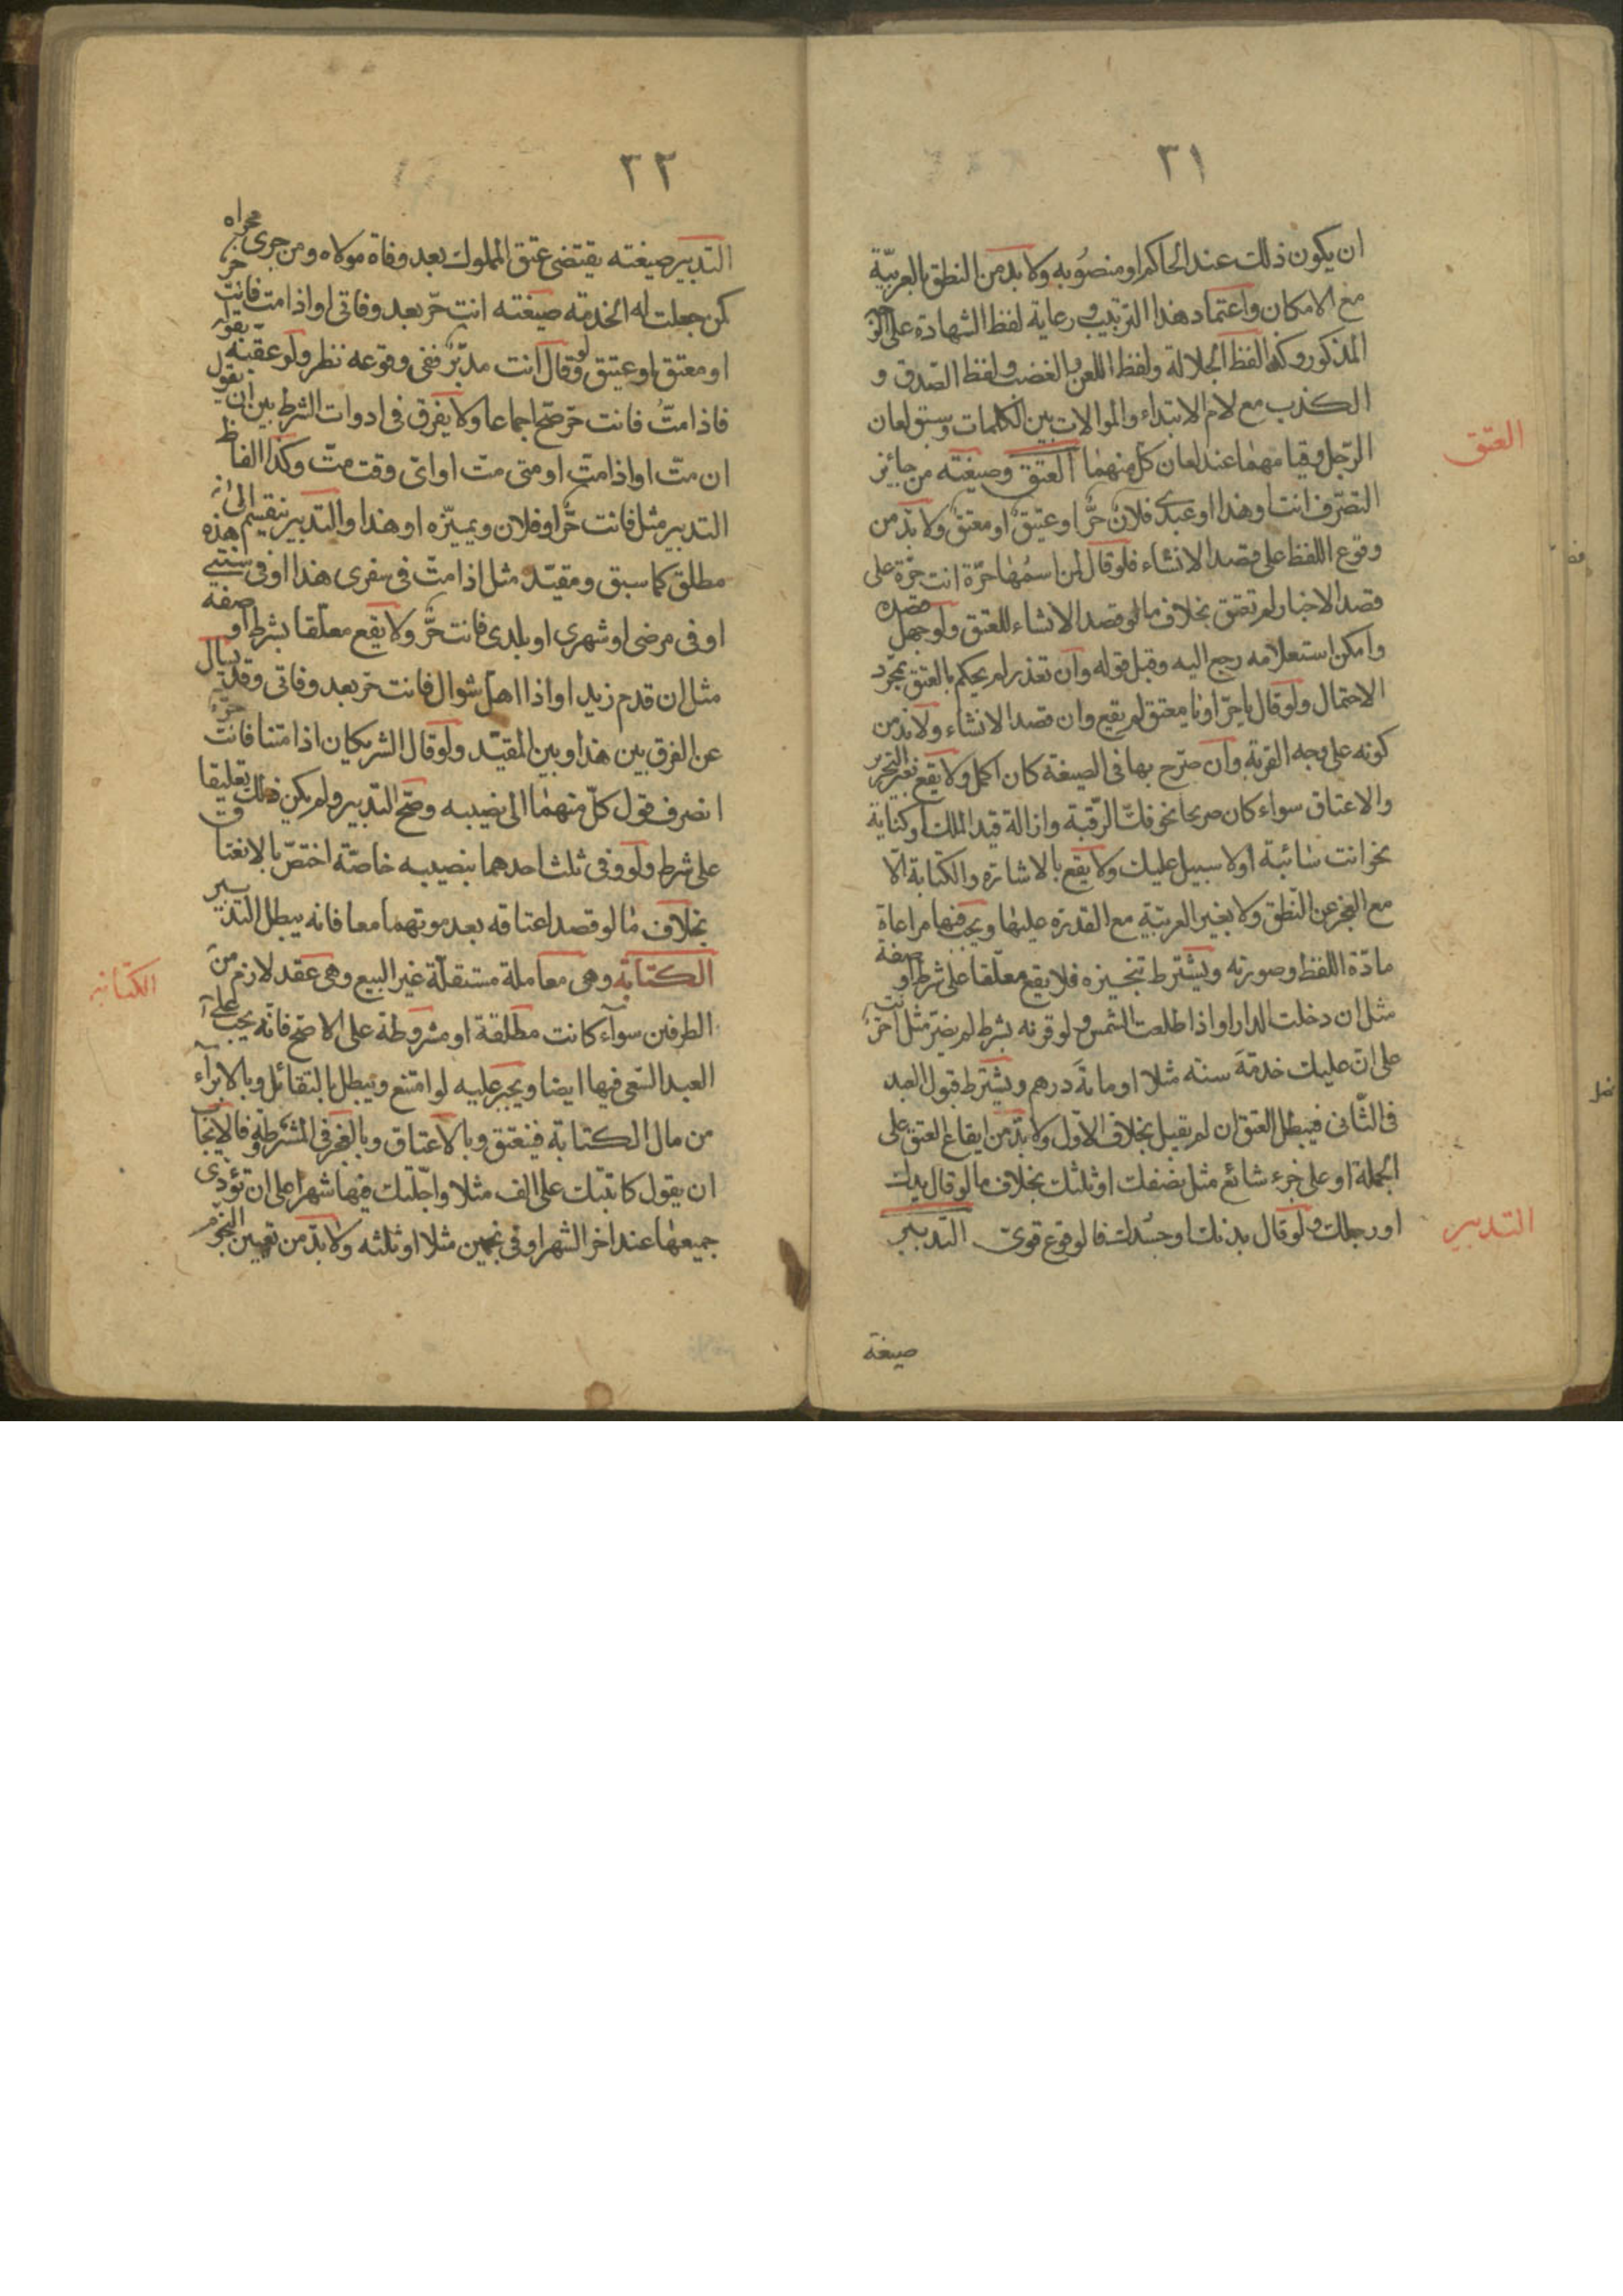 ٣١
ان يكون ذلك عند الحاكم او منصوبه ولا بد من النطق بالعربيّة
مع الامكان واعتماد هذا الترتيب ورعاية لفظ الشهادة على الوجه
المذكور وكذا لفظ الجلالة ولفظ اللعن والغضب ولفظ الصّدق و
الكذب مع لام الابتداء والموالات بين الكلمات وسبق لعان
الرّجل وقيامهما عند لعان كلّ منهما العتق وصيغته من جائز
العتق
التصرّف انت او هذا او عبدى فلان حرٌّ او عتيق او معتق ولا بدّ من
وقوع اللفظ على قصد الانشاء فلو قال لمن اسمها حرّة انت حرّة على
قصد الاخبار لم تعتق بخلاف ما لو قصد الانشاء للعتق ولو جهل قصده
وامكن استعلامه رجع اليه وقبل قوله وان تعذر لم يحكم بالعتق بمجرّد
الاحتمال ولو قال يا حرّ او يا معتق لم يقع وان قصد الانشاء ولا بدّ من
كونه على وجه القربة وان صرّح بها فى الصيغة كان اكمل ولا يقع بغير التحرير
والاعتاق سواء كان صريحا نحو فكّ الرّقبة وازالة قيد الملك او كناية
نحو انت سائبة او لا سبيل عليك ولا يقع بالاشارة والكتابة الّا
مع العجز عن النّطق ولا بغير العربيّة مع القدرة عليها ويجب فيها مراعاة
مادّة اللفظ وصورته ويشترط تنجيزه فلا يقع معلّقا على شرط او صفة
مثل ان دخلت الدار او اذا طلعت الشمس ولو قرنه بشرط لم يضرّ مثل انت حرّ
على انّ عليك خدمة سنه مثلا او مائة درهم ويشترط قبول العبد
فى الثّانى فيبطل العتق ان لم يقبل بخلاف الاوّل ولا بدّ من ايقاع العتق على
الجملة او على جزء شائع مثل نصفك او ثلثك بخلاف ما لو قال يدك
او رجلك ولو قال بدنك او جسدك فالوقوع قوىّ التدبير
التدبير
صيغة
٣٢
التدبير صيغته يقتضى عتق المملوك بعد وفاة مولاه ومن جرى مجراه
كمن جعلت له الخدمة صيغته انت حرّ بعد وفاتى او اذا متّ فانت حرّ
او معتق او عتيق ولو قال انت مدبّرٌ ففى وقوعه نظر ولو عقّبه بقوله
فاذا متُّ فانت حرّ صحّ اجماعا ولا يفرق فى ادوات الشرط بين ان يقول
ان متّ او اذا متّ او متى متّ او اىّ وقت متّ وكذا الفاظ
التدبير مثل فانت حرٌّ او فلان ويميّزه او هذا والتّدبير ينقسم الى
مطلق كما سبق ومقيّد مثل اذا متّ فى سفرى هذا او فى سنتى هذه
او فى مرضى او شهرى او بلدى فانت حرٌّ ولا يقع معلّقا بشرط او صفة
مثل ان قدم زيد او اذا اهلّ شوال فانت حرّ بعد وفاتى وقد يسال
عن الفرق بين هذا وبين المقيّد ولو قال الشريكان اذا متنا فانت حرّ
انصرف قول كلّ منهما الى نصيبه وصحّ التدبير ولم يكن ذلك تعليقا
على شرط ولو وفى ثلث احدهما بنصيبه خاصّة اختصّ بالانعتاق
بخلاف ما لو قصدا عتاقه بعد موتهما معا فانه يبطل التدبير
الكتابة وهى معاملة مستقلّة غير البيع وهى عقد لازم من
الكتابة
الطرفين سواء كانت مطلقة او مشروطة على الاصحّ فانّه يجب على
العبد السّعى فيها ايضا ويجبر عليه لو امتنع ويبطل بالتقائل وبالابراء
من مال الكتابة فينعتق وبالاعتاق وبالعجز فى المشروطة والايجاب
ان يقول كاتبتك على الف مثلا واجّلتك فيها شهرا على ان تؤدّى
جميعها عند اخر الشهر او فى نجمين مثلا او ثلثه ولا بدّ من تعيين النجوم